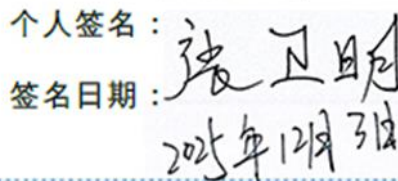 个人签名：张卫明
签名日期：2025年12月3日